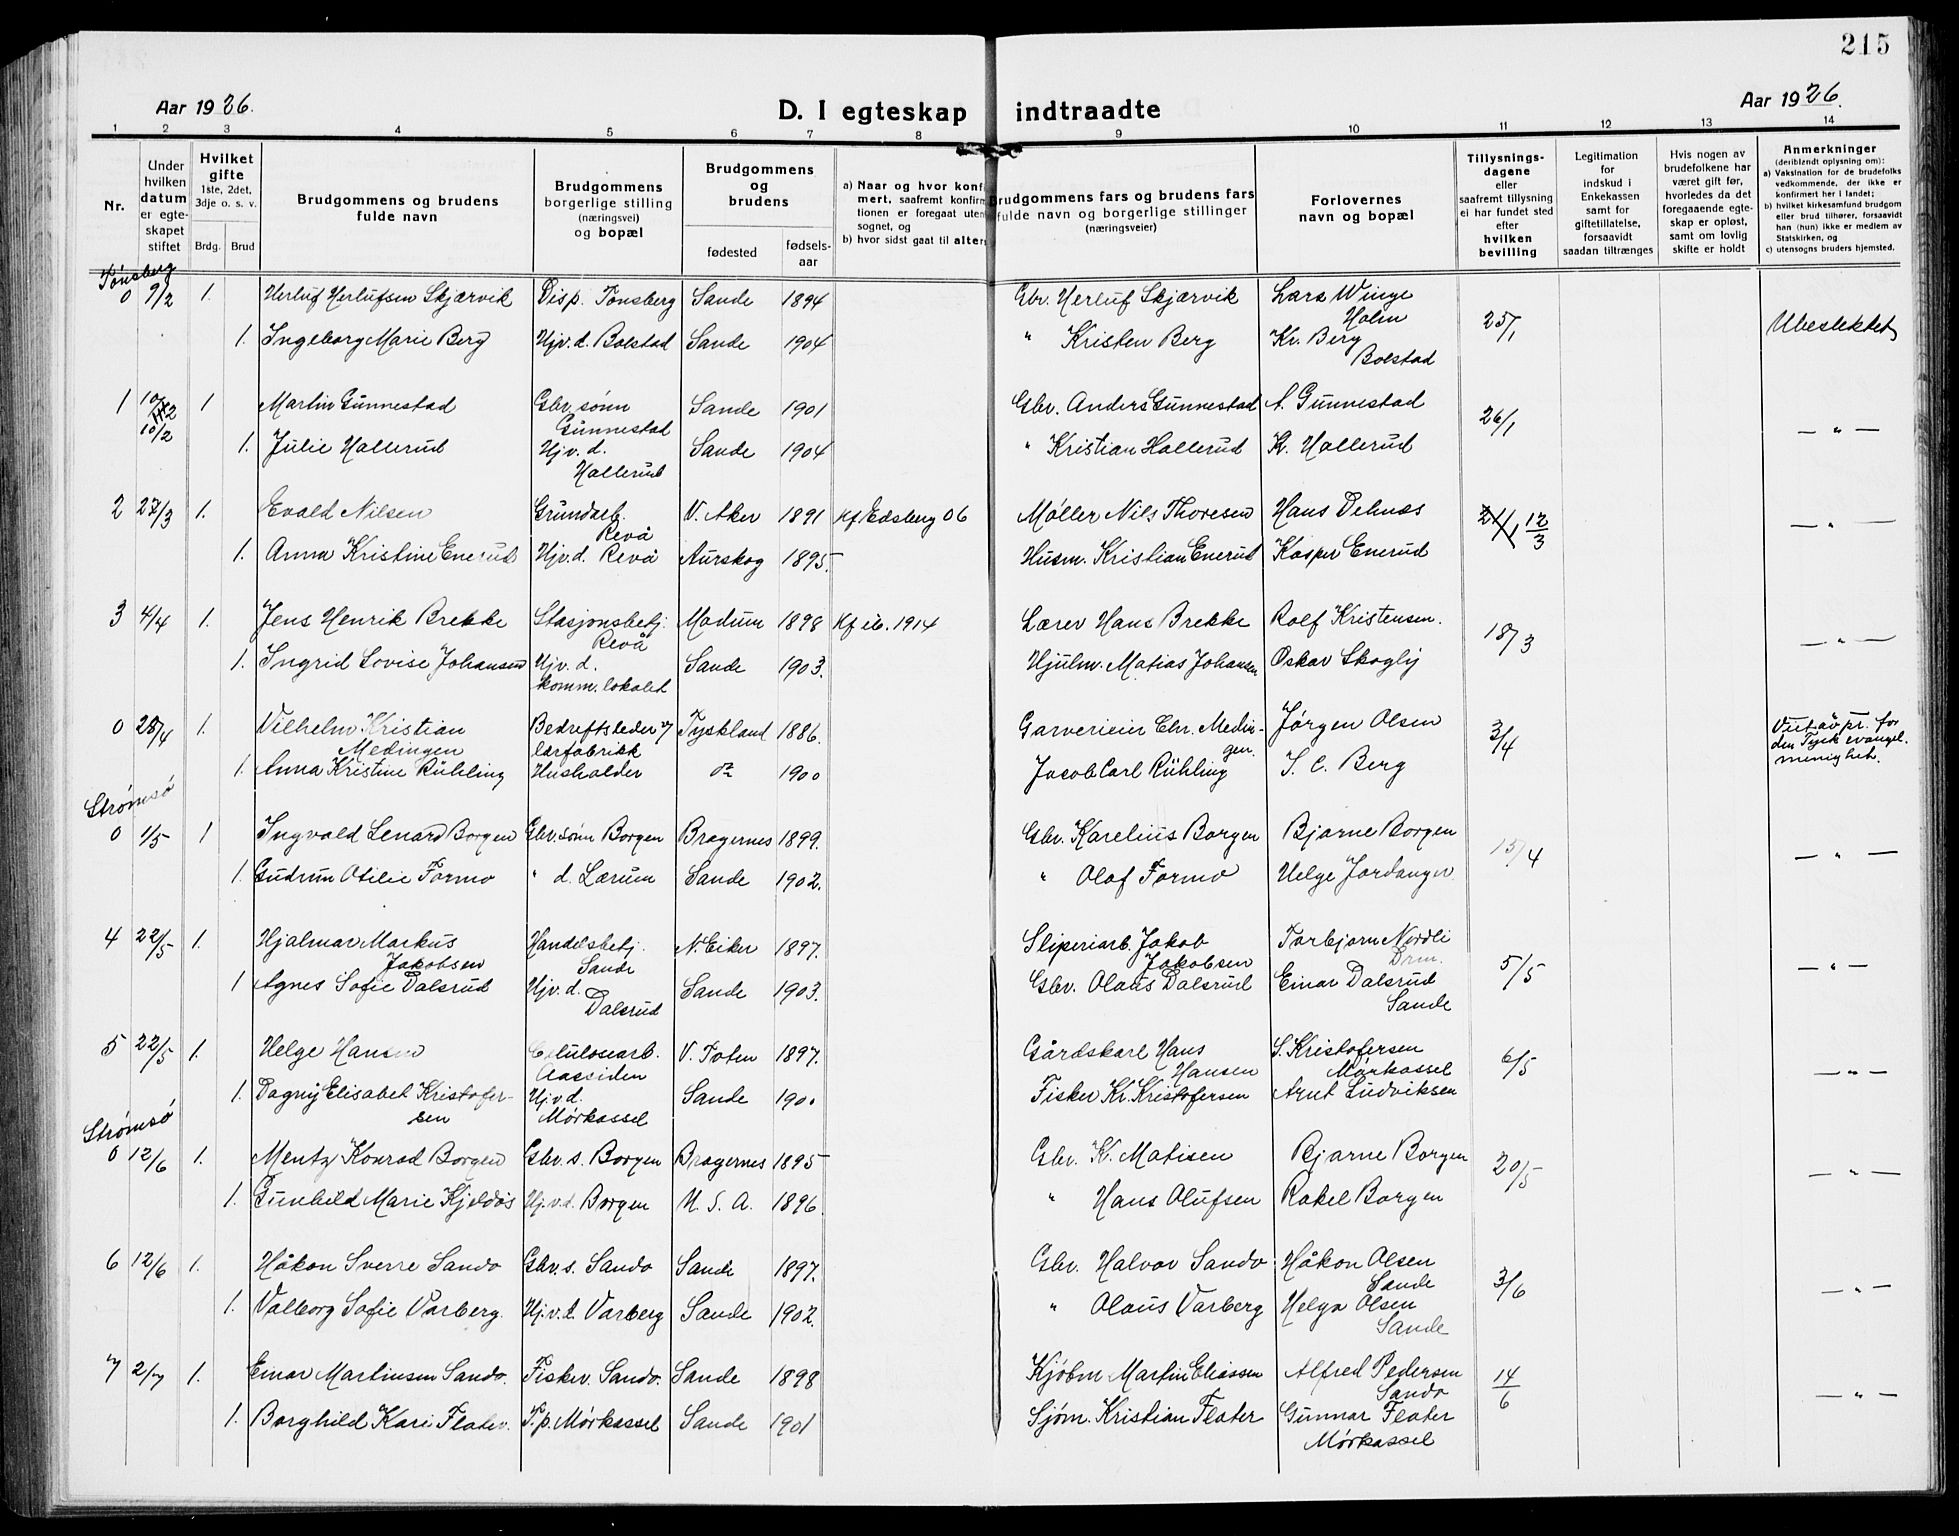 215
Aar 1926.
D. I egteskap indtraadte
Aar 1926.
1 2 3 4 5 6 7 8 9 10 11 12 13 14
Nr.
Under hvilken datum er egteskapet stiftet
Hvilket gifte 1ste, 2det, 3dje o. s. v.
Brdg. Brud
Brudgommens og brudens fulde navn
Brudgommens borgerlige stilling (næringsvei) og bopæl
Brudgommens og brudens
fødested
fødsels-aar
a) Naar og hvor konfirmert, saafremt konfirmationen er foregaat utensognet, og
b) hvor sidst gaat til alters
Brudgommens fars og brudens fars fulde navn og borgerlige stillinger (næringsveier)
Forlovernes navn og bopæl
Tillysnings-dagene eller saafremt tillysning ei har fundet sted efter hvilken bevilling
Legitimation for indskud i Enkekassen samt for giftetillatelse, forsaavidt saadan tiltrænges
Hvis nogen av brudefolkene har været gift før, hvorledes da det foregaaende egteskap er opløst, samt om lovlig skifte er holdt
Anmerkninger (deriblendt oplysning om):
a) Vaksination for de brudefolks vedkommende, der ikke er konfirmert her i landet;
b) hvilket kirkesamfund brudgom eller brud tilhører, forsaavidt han (hun) ikke er medlem av Statskirken, og
c) utensogns bruders hjemsted.
Tønsberg
0 9/2 1. Herluf Herlufsen Skjærvik Disp. Tønsberg Sande 1894 Gbr. Herluf Skjærvik Lars Winge Holm 25/1 Ubeslektet
1. Ingeborg Marie Berg Hjv.d. Bolstad Sande 1904 " Kristen Berg Kr. Berg Bolstad
1 10/2 1 Martin Gunnestad Gbr. sønn Gunnestad Sande 1901 Gbr. Anders Gunnestad A. Gunnestad 26/1 — " —
1. Julie Hallerud Hjv.d. Hallerud Sande 1904 " Kristian Hallerud K. Hallerud
2 27/3 1. Evald Nilsen Grundarb. Revå V. Aker 1891 Kf Edsberg 06 Møller Nils Thoresen Hans Dehnæs 12/3 — " —
1. Anna Kristine Enerud Hjv.d. Revå Aurskog 1895. Husm. Kristian Enerud Kasper Enerud
3 4/4 1. Jens Henrik Brekke Stasjonsbetj. Revå Modum 1898 Kf ib. 1914 Lærer Hans Brekke Rolf Kristensen. 18/3 — " —
1. Ingrid Lovise Johansen Hjv.d. komm.lokalet Sande 1903. Hjulm. Matias Johansen Oskar Skogly
0 28/4 1. Vilhelm Kristian Medingen Bedriftsleder v/ lærfabrikk Tyskland 1886. Garverieier Chr. Medingen Jørgen Olsen 3/4 Viet av pr. for den Tysk evangel. menighet.
1. Anna Kristine Rühling Husholder do 1900 Jacob Carl Rühling S. C. Berg
Strømsø
0 1/5 1 Ingvald Lenard Borgen Gbr.sønn Borgen Bragernes 1899. Gbr. Karelius Borgen Bjarne Borgen 13/4 — " —
1. Gudrun Otilie Formo " d. Lærum Sande 1902. " Olaf Formo Helge Jordanger
4 22/5 1. Hjalmar Markus Jakobsen Handelsbetj. Sande N. Eiker 1897. Sliperiarb. Jakob Jakobsen Torbjørn Nordli Drm. 5/5 — " —
1 Agnes Sofie Dalsrud Hjv.d. Dalsrud Sande 1903. Gbr. Olaus Dalsrud Einar Dalsrud Sande
5 22/5 1. Helge Hansen Celulosearb. Aassiden V. Toten 1897. Gårdskarl Hans Hansen S. Kristofersen Mørkassel 6/5 — " —
1. Dagny Elisabet Kristofersen Hjv.d. Mørkassel Sande 1900 Fisker Kr. Kristofersen Arnt Ludviksen
Strømsø
0 12/6 1. Mentz Konrad Borgen Gbr. s. Borgen Bragernes 1895 Gbr. K. Matisen Bjarne Borgen 20/5 — " —
1. Gunhild Marie Kjeldås Hj.v.d. Borgen U. S. A. 1896. " Hans Olufsen Rakel Borgen
6 12/6 1. Håkon Sverre Sando Gbr. s. Sando Sande 1897. Gbr. Halvor Sando Håkon Olsen Sande 3/6 — " —
1. Valborg Sofie Varberg. Hj.v.d. Varberg Sande 1902. " Olaus Varberg Helga Olsen Sande
7 2/7 1. Einar Martinsen Sando. Fisker. Sando. Sande 1898 Kjøbm Martin Eliassen Alfred Pedersen Sando 14/6 — " —
1. Borghild Kari Flater. T.p. Mørkassel Sande 1901 Sjøm. Kristian Flater Gunnar Flater Mørkassel